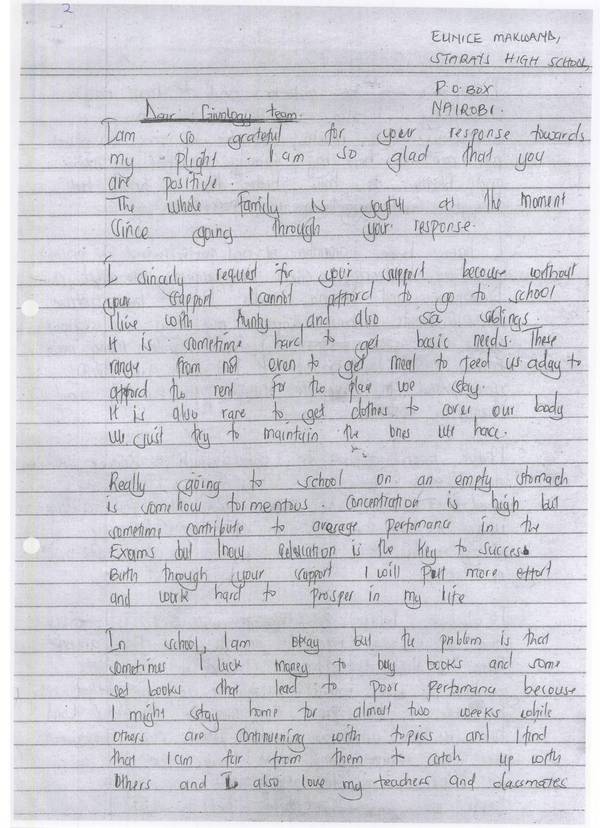 2
EUNICE MAKWANA,
STARAYS HIGH SCHOOL,
P.O.BOX
NAIROBI.
Dear Givology team.
I am so grateful for your response towards
my plight. I am so glad that you
are positive.
The whole family is joyful at the moment
since going through your response.
I sincerly request for your support because without
your support I cannot afford to go to school
I live with Aunty and also siblings.
It is sometime hard to get basic needs. These
range from not even to get meal to feed us a day to
afford the rent for the place we stay.
It is also rare to get clothes to cover our body
We just try to maintain the ones we have.
Really going to school on an empty stomach
is somehow tormentous. Concentration is high but
sometime contribute to average performance in the
Exams but I know Education is the key to success
But through your support I will put more effort
and work hard to prosper in my life
In school, I am okay but the problem is that
sometimes I luck money to buy books and some
set books that lead to poor performance because
I might stay home for almost two weeks while
others are continueing with topics and I find
that I am far from them to catch up with
others and I also love my teachers and classmates